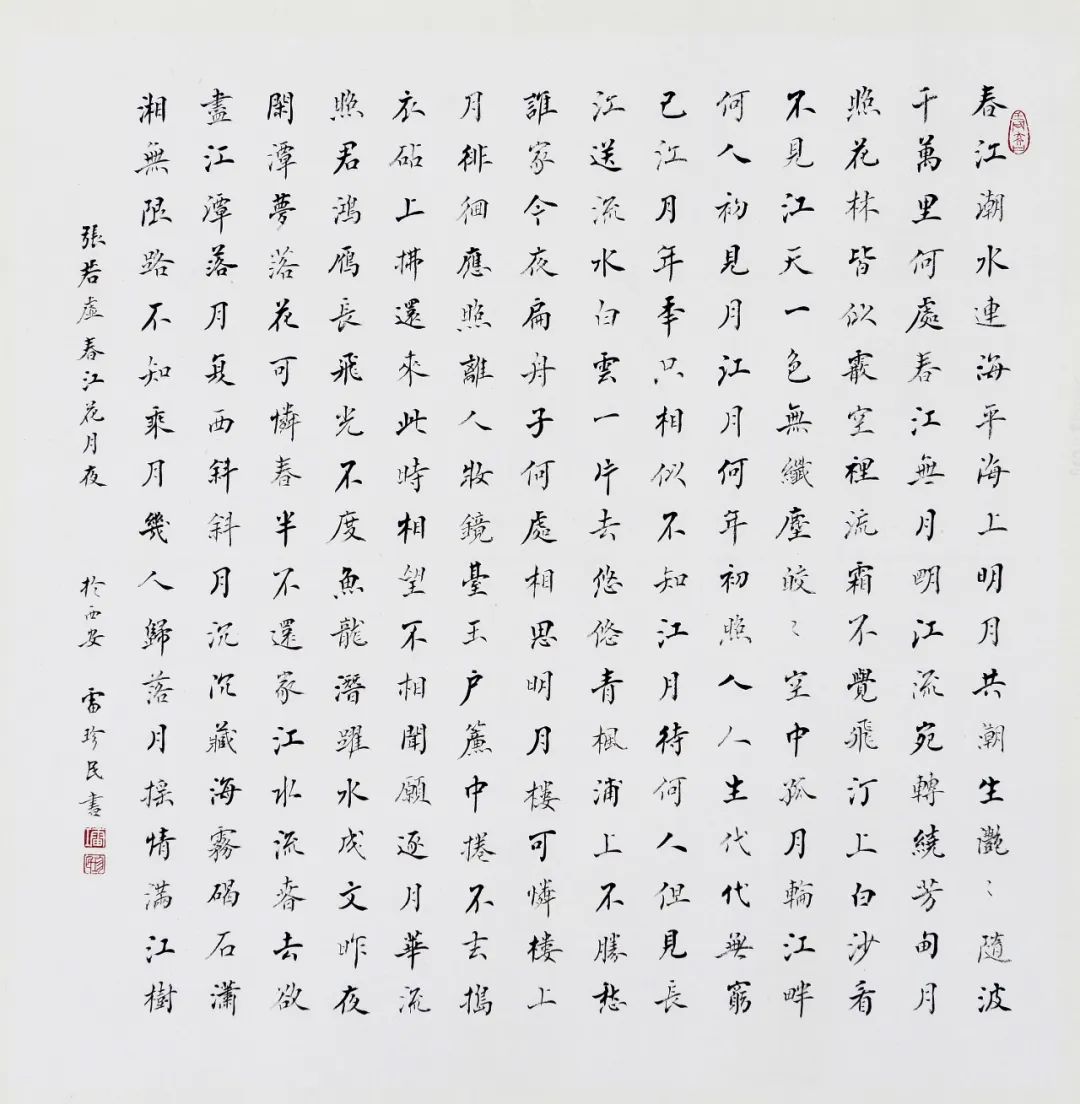 春江潮水連海平海上明月共潮生灔〻隨波
千萬里何處春江無月明江流宛轉繞芳甸月
照花林皆似霰空裡流霜不覺飛汀上白沙看
不見江天一色無纖塵皎〻空中孤月輪江畔
何人初見月江月何年初照人人生代代無窮
已江月年秊只相似不知江月待何人但見長
江送流水白雲一片去悠悠青楓浦上不勝愁
誰家今夜扁舟子何處相思明月樓可憐樓上
月徘徊應照離人妝鏡臺玉户簾中捲不去搗
衣砧上拂還來此時相望不相聞願逐月華流
照君鴻雁長飛光不度魚龍潛躍水成文昨夜
閑潭夢落花可憐春半不還家江水流春去欲
盡江潭落月复西斜斜月沉沉藏海霧碣石瀟
湘無限路不知乘月幾人歸落月摇情满江樹
張若虛春江花月夜 於西安 雷珍民書